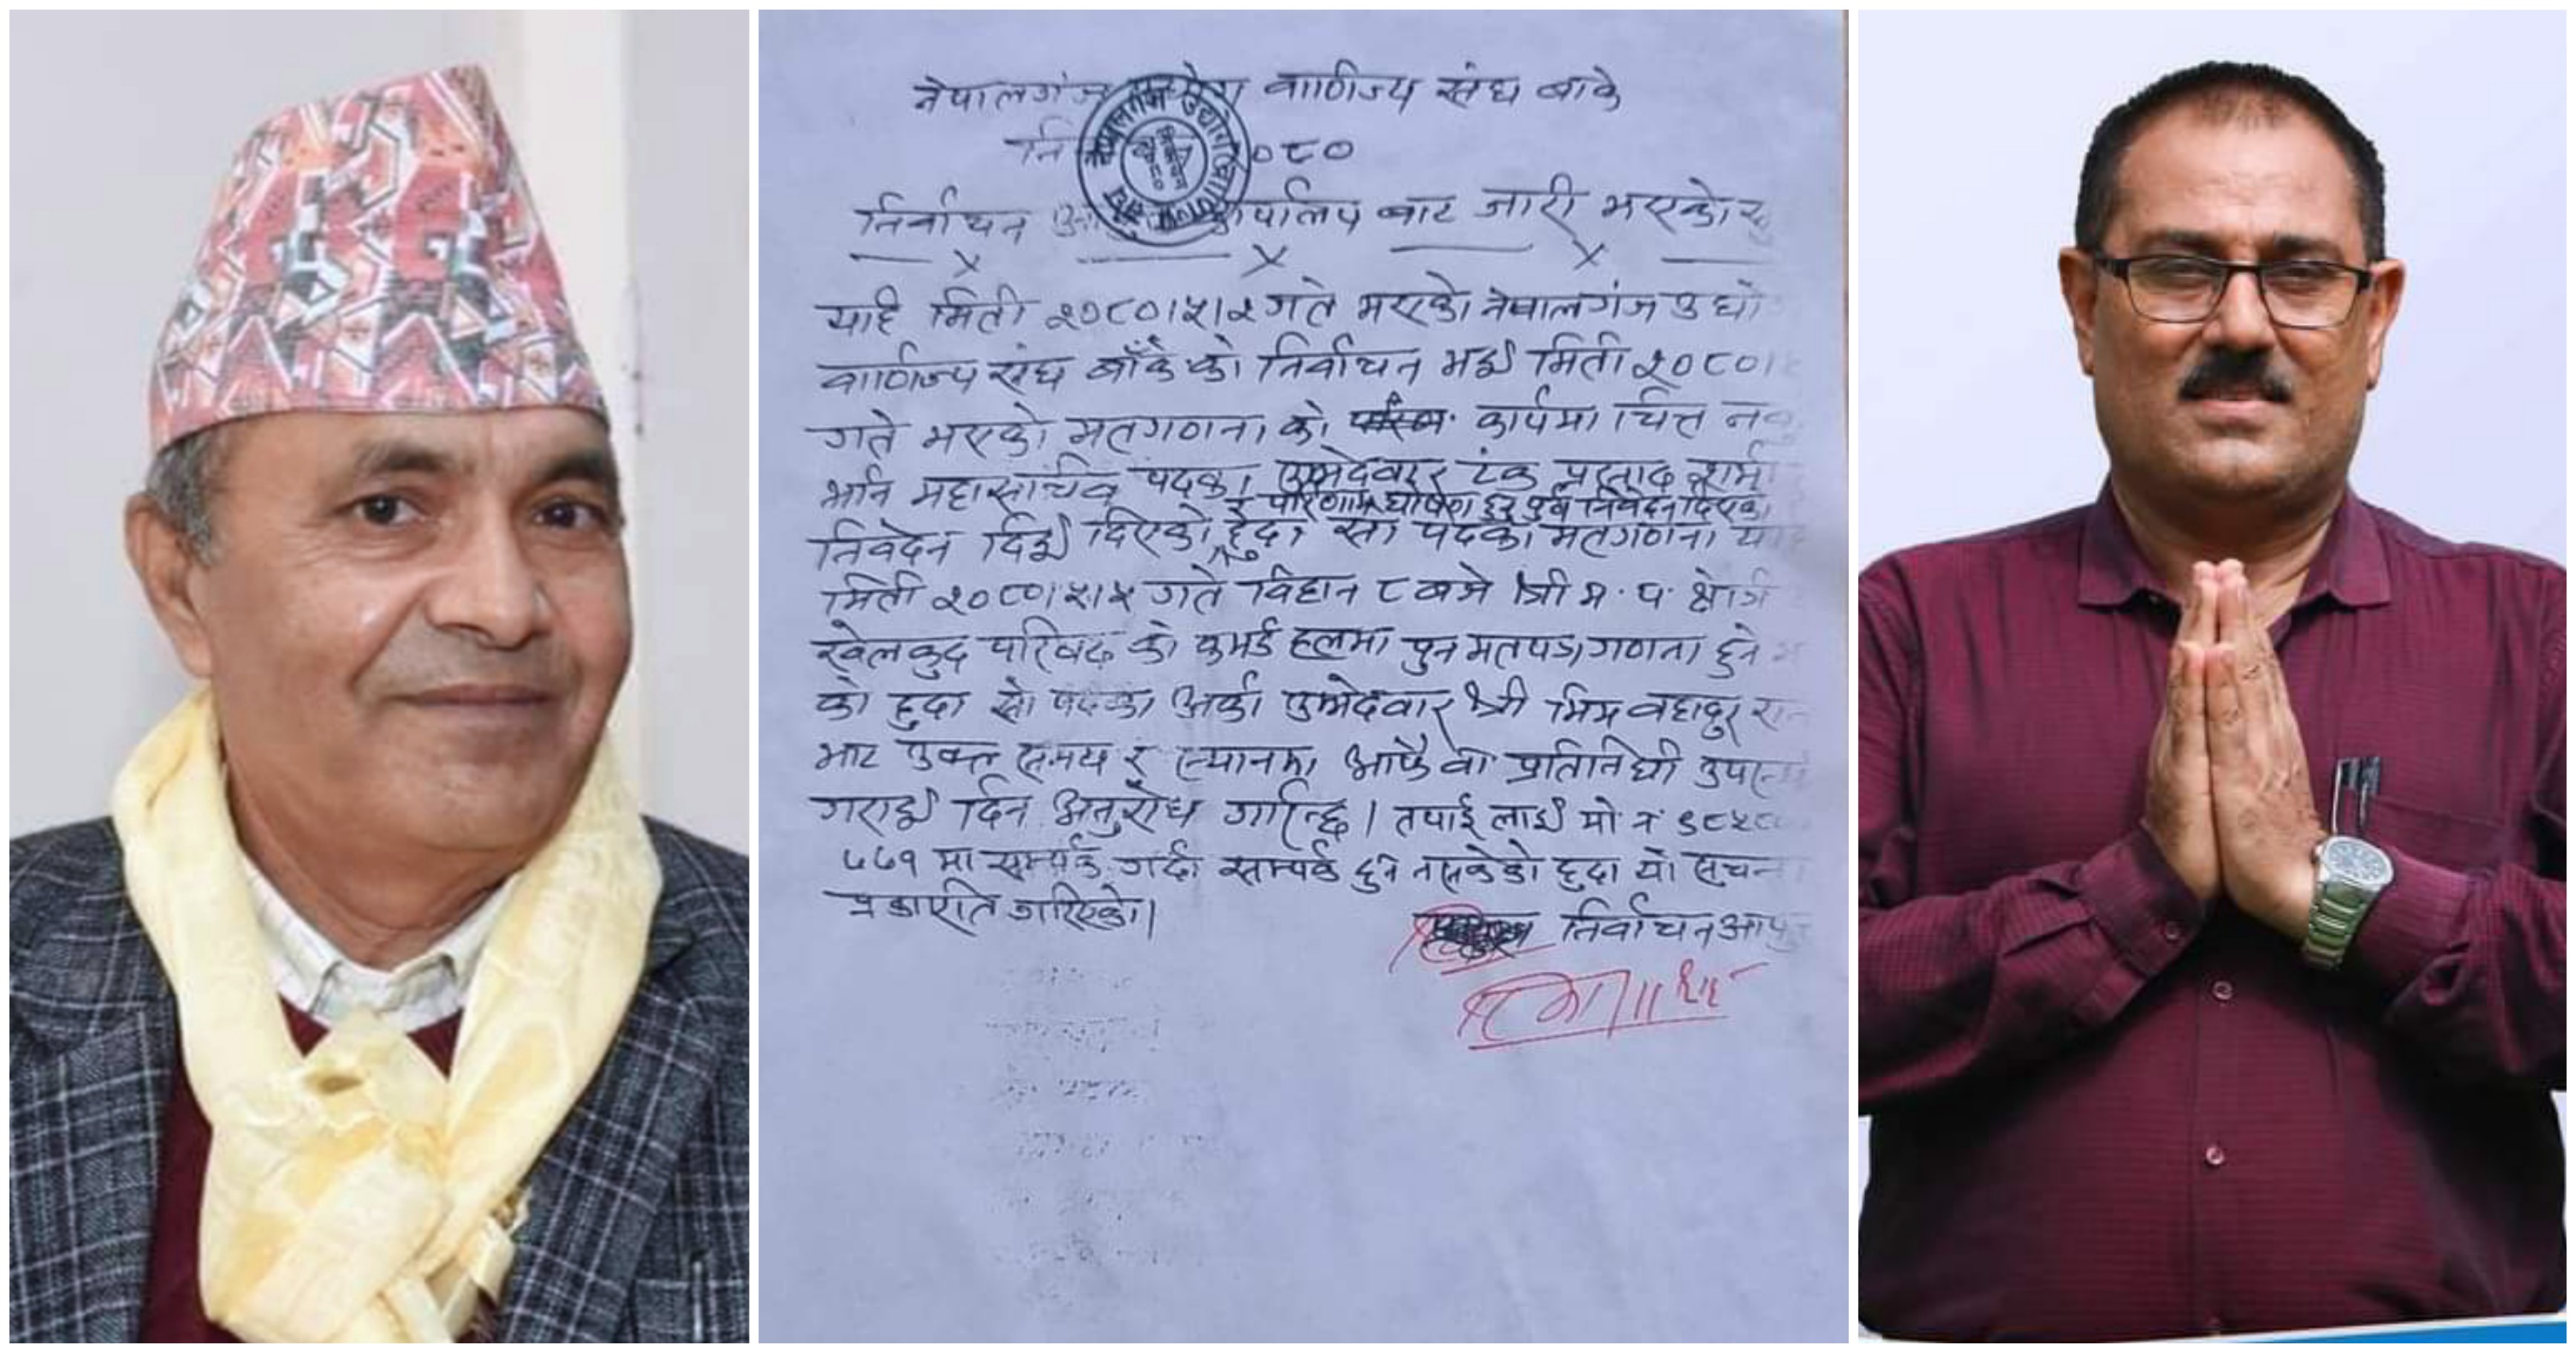 नेपालगंज वाणिज्य संघ बाके
२०८०
निर्वाचन बाट जारी भएको
याहि मिती २०८०।५।२ गते भएको नेपालगंज
वाणिज्य संघ बाँके को निर्वाचन भई मिती २०८०।
गते भएको मतगणना को कार्यमा चित्त
भनि महासचिव पदका उम्मेदवार टंक प्रसाद शर्मा
र परिणाम घोषणा हुनु पुर्व निवेदन दिएका
निवेदन दिई दिएको हुदा सो पदको मतगणना
मिती २०८०।५।५ गते विहान ८ बजे श्री म.प. क्षेत्रि
खेलकुद परिषद को कभर्ड हलमा पुन मतपत्र गणना हुने
को हुदा सो पदका अर्का उम्मेदवार श्री भिम बहादुर
बाट उक्त समय र स्थानमा आफै वा प्रतिनिधी
गराई दिन अनुरोध गरिन्छ। तपाई लाई मो नं ९८५८
७७१ मा सम्पर्क गर्दा सम्पर्क हुन नसकेको हुदा यो सूचना
प्रकाशित गरिएको।
निर्वाचन